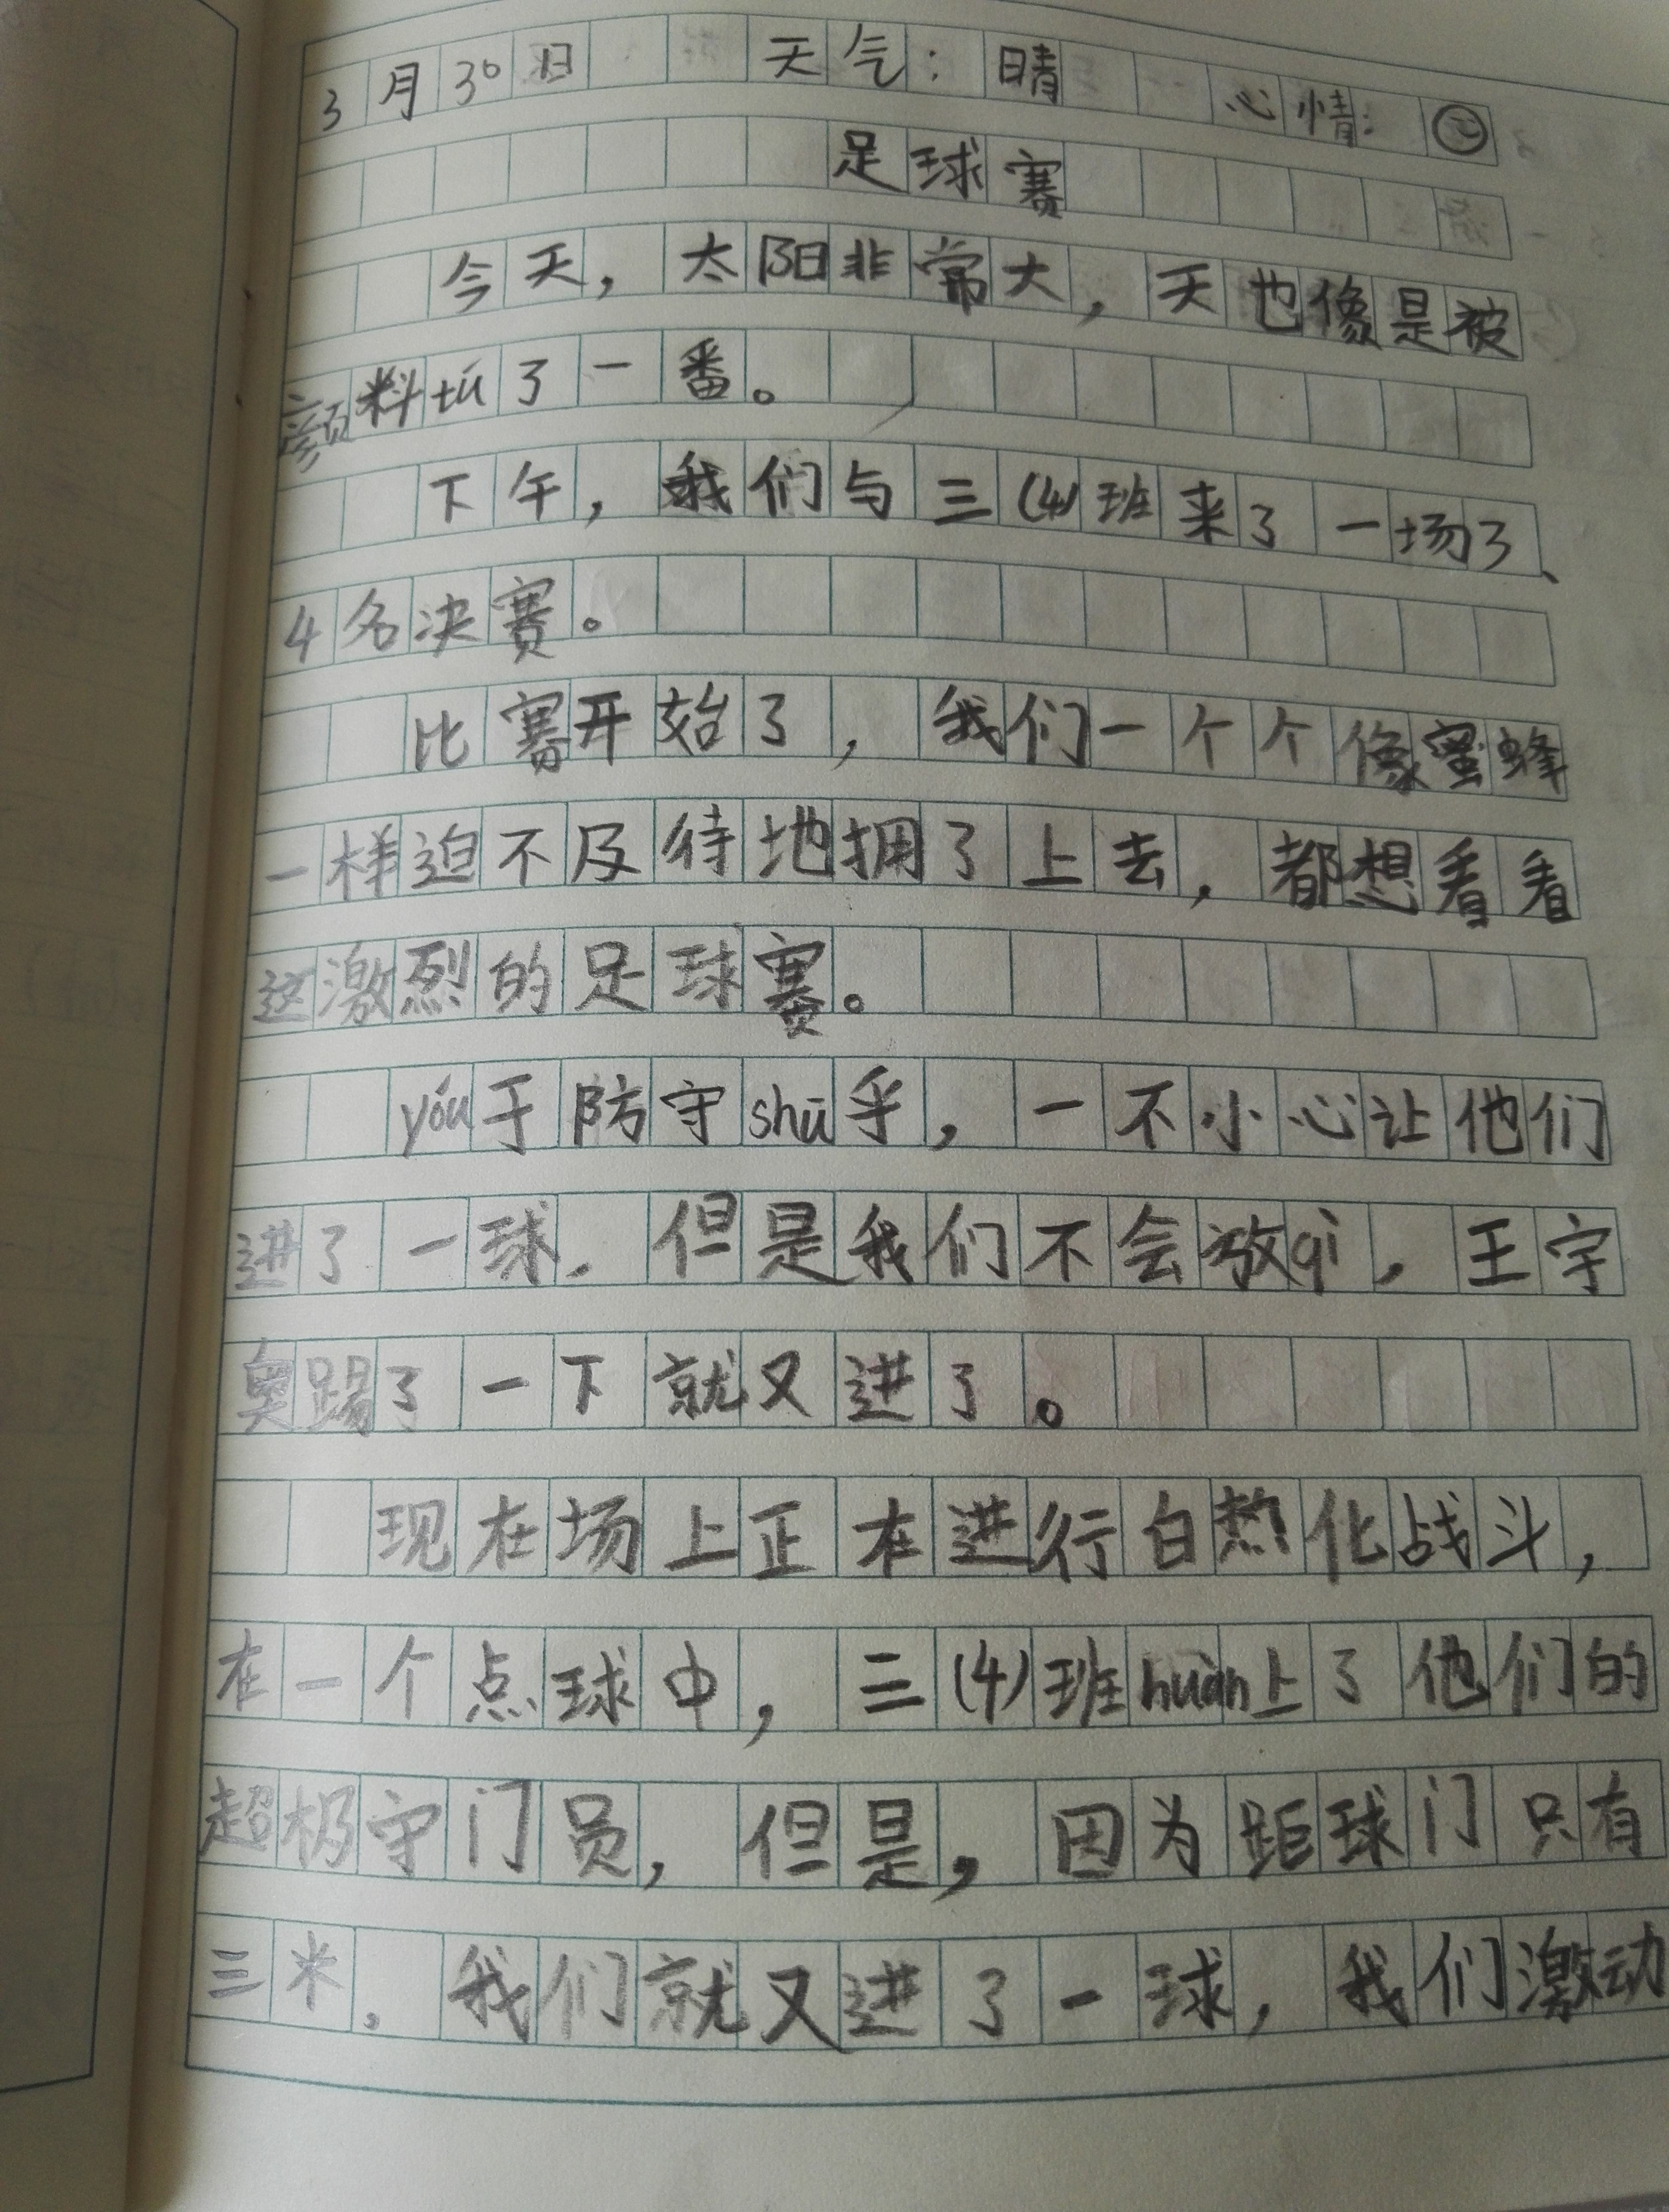 3月30日 天气：晴 心情：
足球赛
今天，太阳非常大，天也像是被
颜料tú了一番。
下午，我们与三(4)班来了一场了、
4名决赛。
比赛开始了，我们一个个像蜜蜂
一样迫不及待地拥了上去，都想看看
这激烈的足球赛。
yóu于防守shū乎，一不小心让他们
进了一球，但是我们不会放qì，王宇
奥踢了一下就又进了。
现在场上正在进行白热化战斗，
在一个点球中，三(4)班huàn上了他们的
超极守门员，但是，因为距球门只有
三米，我们就又进了一球，我们激动